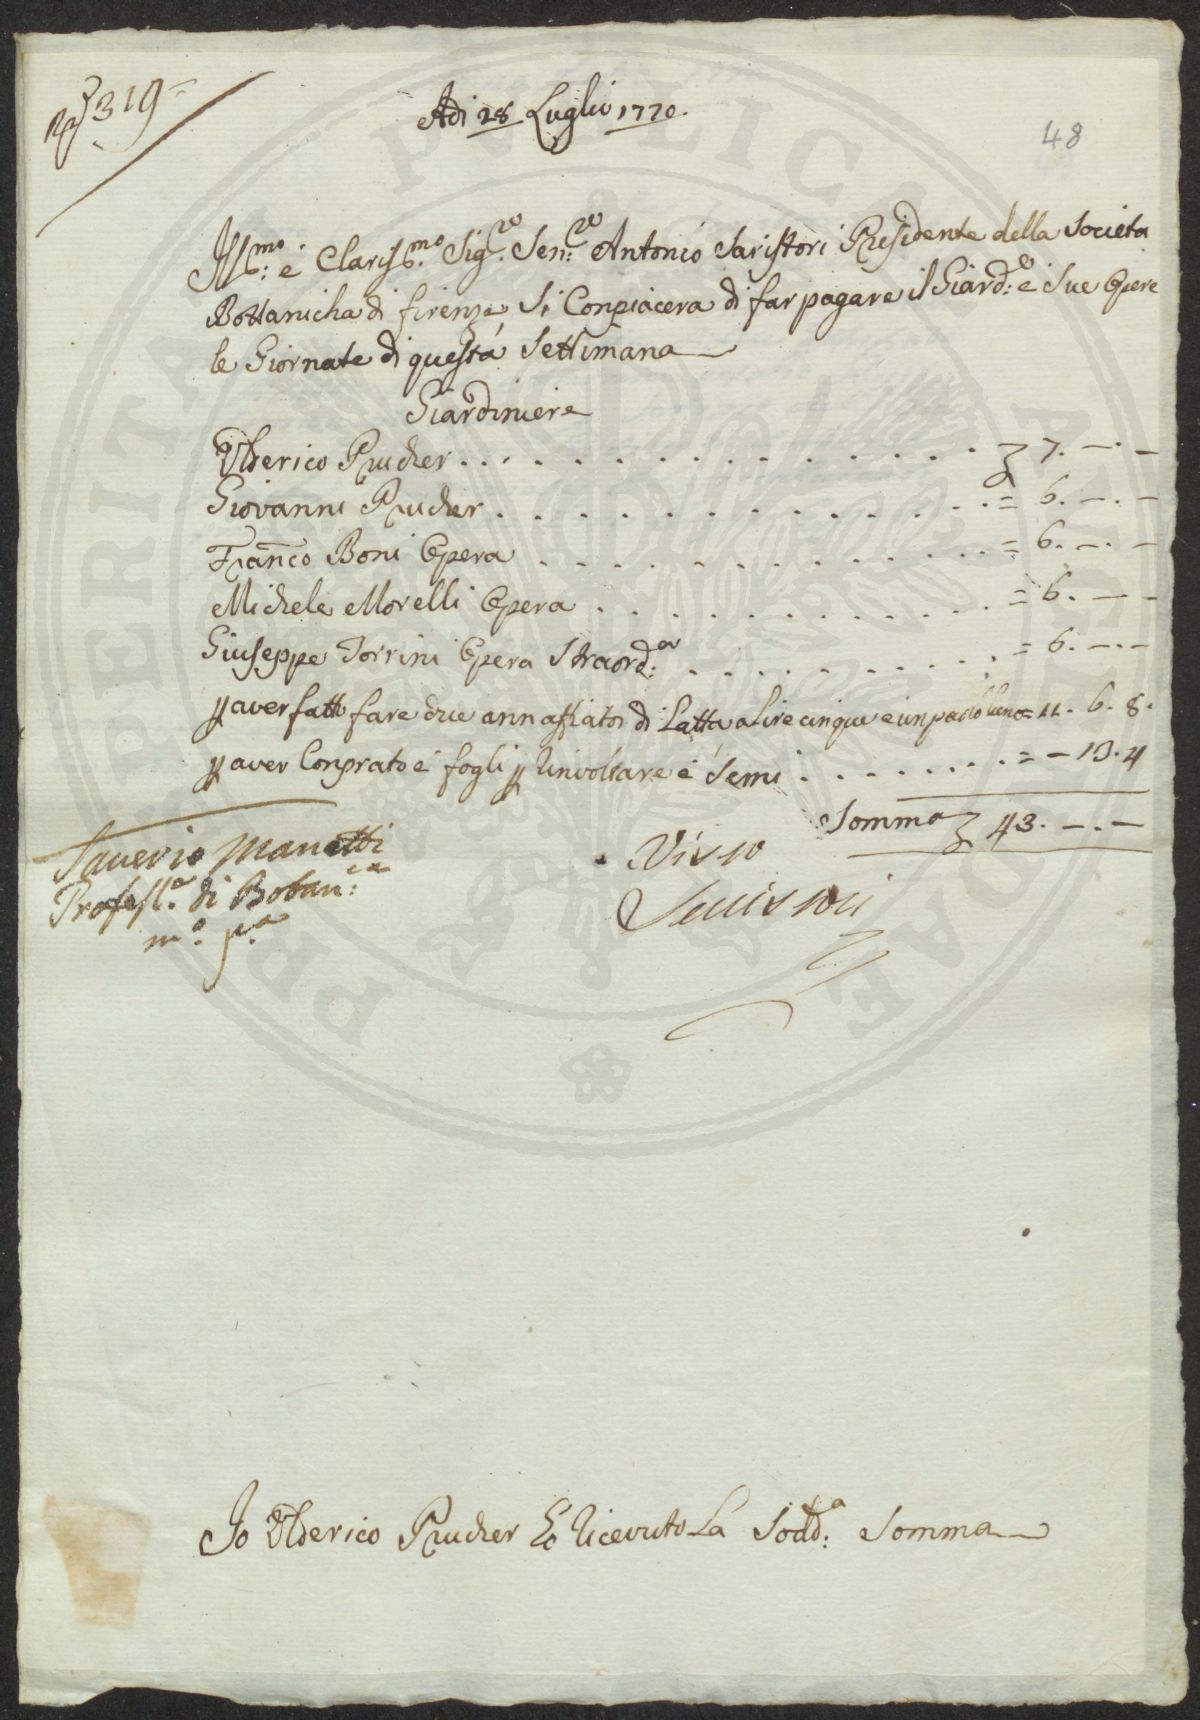 319
Adi 28 Luglio 1770.
48
Ill:mo e Claris:mo Sig:re Sen:re Antonio Saristori Presidente della Societa
Bottanicha di firenze Si Conpiacera di far pagare il Giard:e e Sue Opere
le Giornate di questa Settimana
Giardiniere
Ulderico Prucher . . . . . . . . . . . . . . . . 7. — . —
Giovanni Prucher . . . . . . . . . . . . . . . = 6. — . —
Franco Boni Opera . . . . . . . . . . . . . = 6. — . —
Michele Morelli Opera . . . . . . . . . . . = 6. — —
Giuseppe Torrini Opera Straord:a . . . . . . . . = 6. — . —
p aver fatti fare due annaffiatoi di Latta a Lire cinque e un paolo l'uno = 11. 6. 8.
p aver Conprato e fogli p Rinvoltare e Semi . . . . . . . . = — 13. 4
Somma 43. — . —
Saverio Manetti
Profess.e di Botan:ca
m.o p.a
Visto
Serristori
Io Ulderico Prucher Ho Ricevuto La Sodd:a Somma